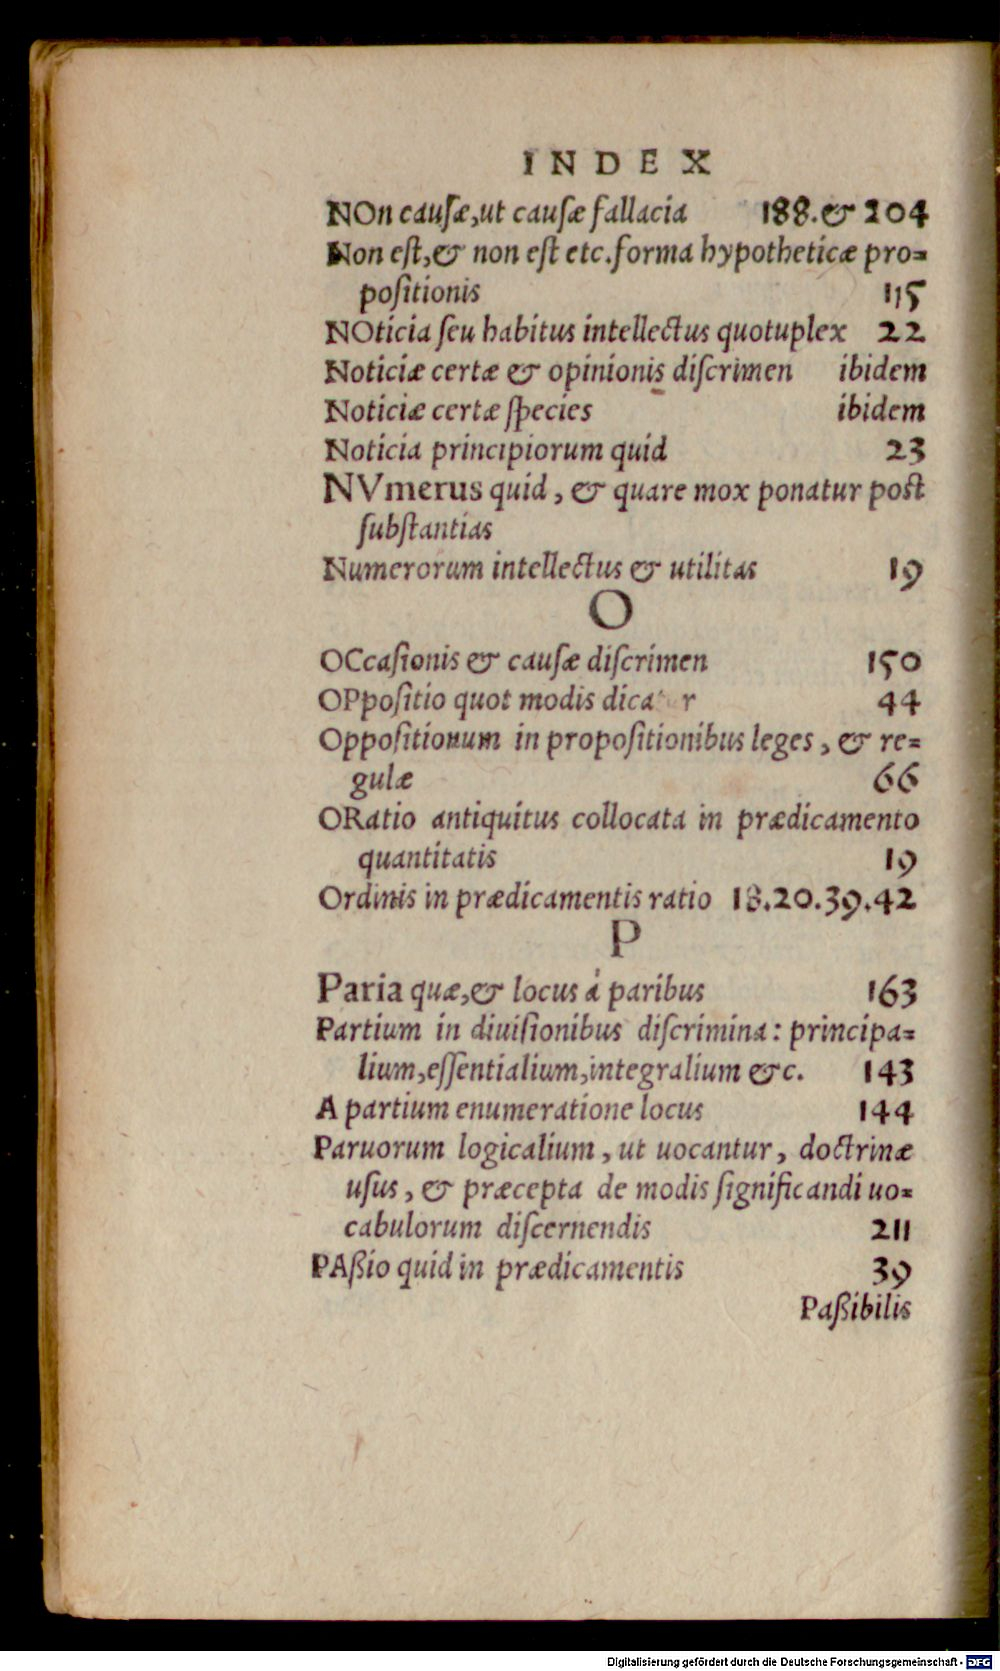 INDEX
NOn causæ,ut causæ fallacia 188.& 204
Non est,& non est etc.forma hypotheticæ pro=
positionis 115
NOticia seu habitus intellectus quotuplex 22
Noticiæ certæ & opinionis discrimen ibidem
Noticiæ certæ species ibidem
Noticia principiorum quid 23
NVmerus quid, & quare mox ponatur post
substantias
Numerorum intellectus & utilitas 19
O
OCcasionis & causæ discrimen 150
OPpositio quot modis 44
Oppositionum in propositionibus leges, & re=
gulæ 66
ORatio antiquitus collocata in prædicamento
quantitatis 19
Ordinis in prædicamentis ratio 18.20.39.42
P
Paria quæ,& locus à paribus 163
Partium in diuisionibus discrimina: principa=
lium,essentialium,integralium &c. 143
A partium enumeratione locus 144
Paruorum logicalium, ut uocantur, doctrinæ
usus, & præcepta de modis significandi uo=
cabulorum discernendis 211
PAßio quid in prædicamentis 39
Paßibilis
Digitalisierung gefördert durch die Deutsche Forschungsgemeinschaft - DFG